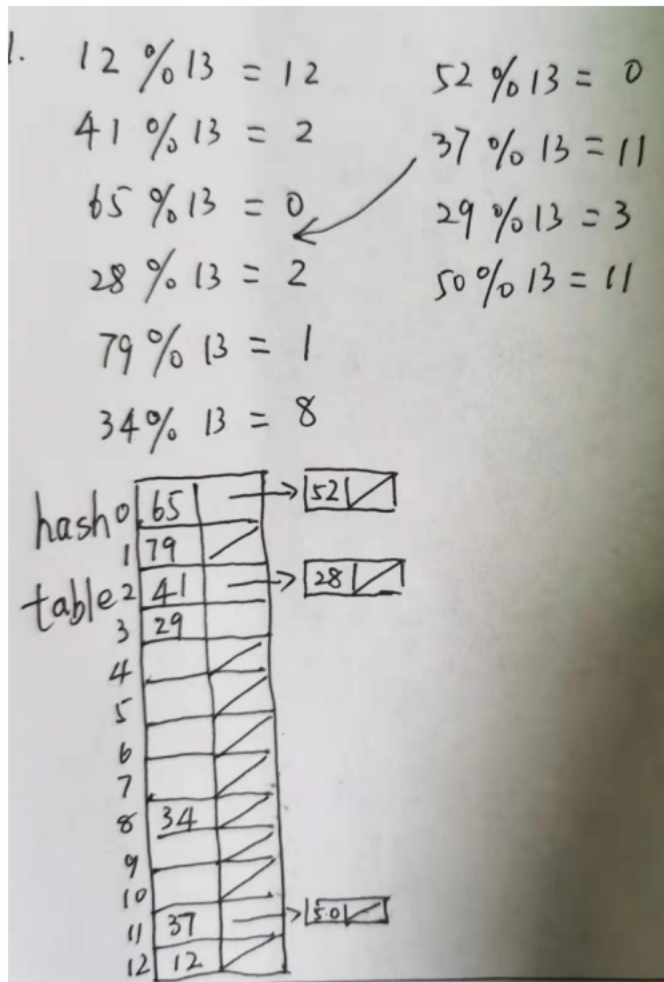 1.
12 % 13 = 12
41 % 13 = 2
65 % 13 = 0
28 % 13 = 2
79 % 13 = 1
34 % 13 = 8
52 % 13 = 0
37 % 13 = 11
29 % 13 = 3
50 % 13 = 11
hash
table
0 65 → 52
1 79
2 41 → 28
3 29
4
5
6
7
8 34
9
10
11 37 → 50
12 12